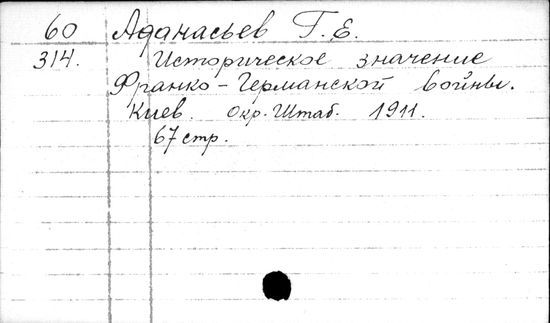 60 Афанасьев Г. Е.
314. Историческое значение
Франко-Германской войны.
Киев. Окр. Штаб. 1911.
67 стр.